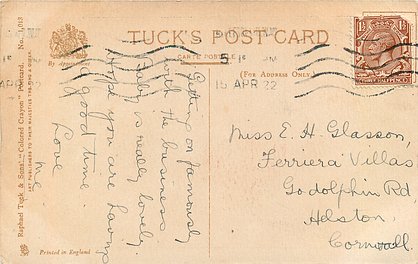 TUCK'S POST CARD
CARTE POSTALE
(FOR ADDRESS ONLY.)
By Appointment
Raphael Tuck & Sons' "Colored Crayon" Postcard. No. 1,013
ART PUBLISHERS TO THEIR MAJESTIES THE KING & QUEEN.
Printed in England
15 AP 22
Getting on famously
with the business
is really lovely.
Hope you are having
a good time
Love
Me
Miss E. H. Glasson,
Ferriera Villas
Godolphin Rd,
Helston,
Cornwall.